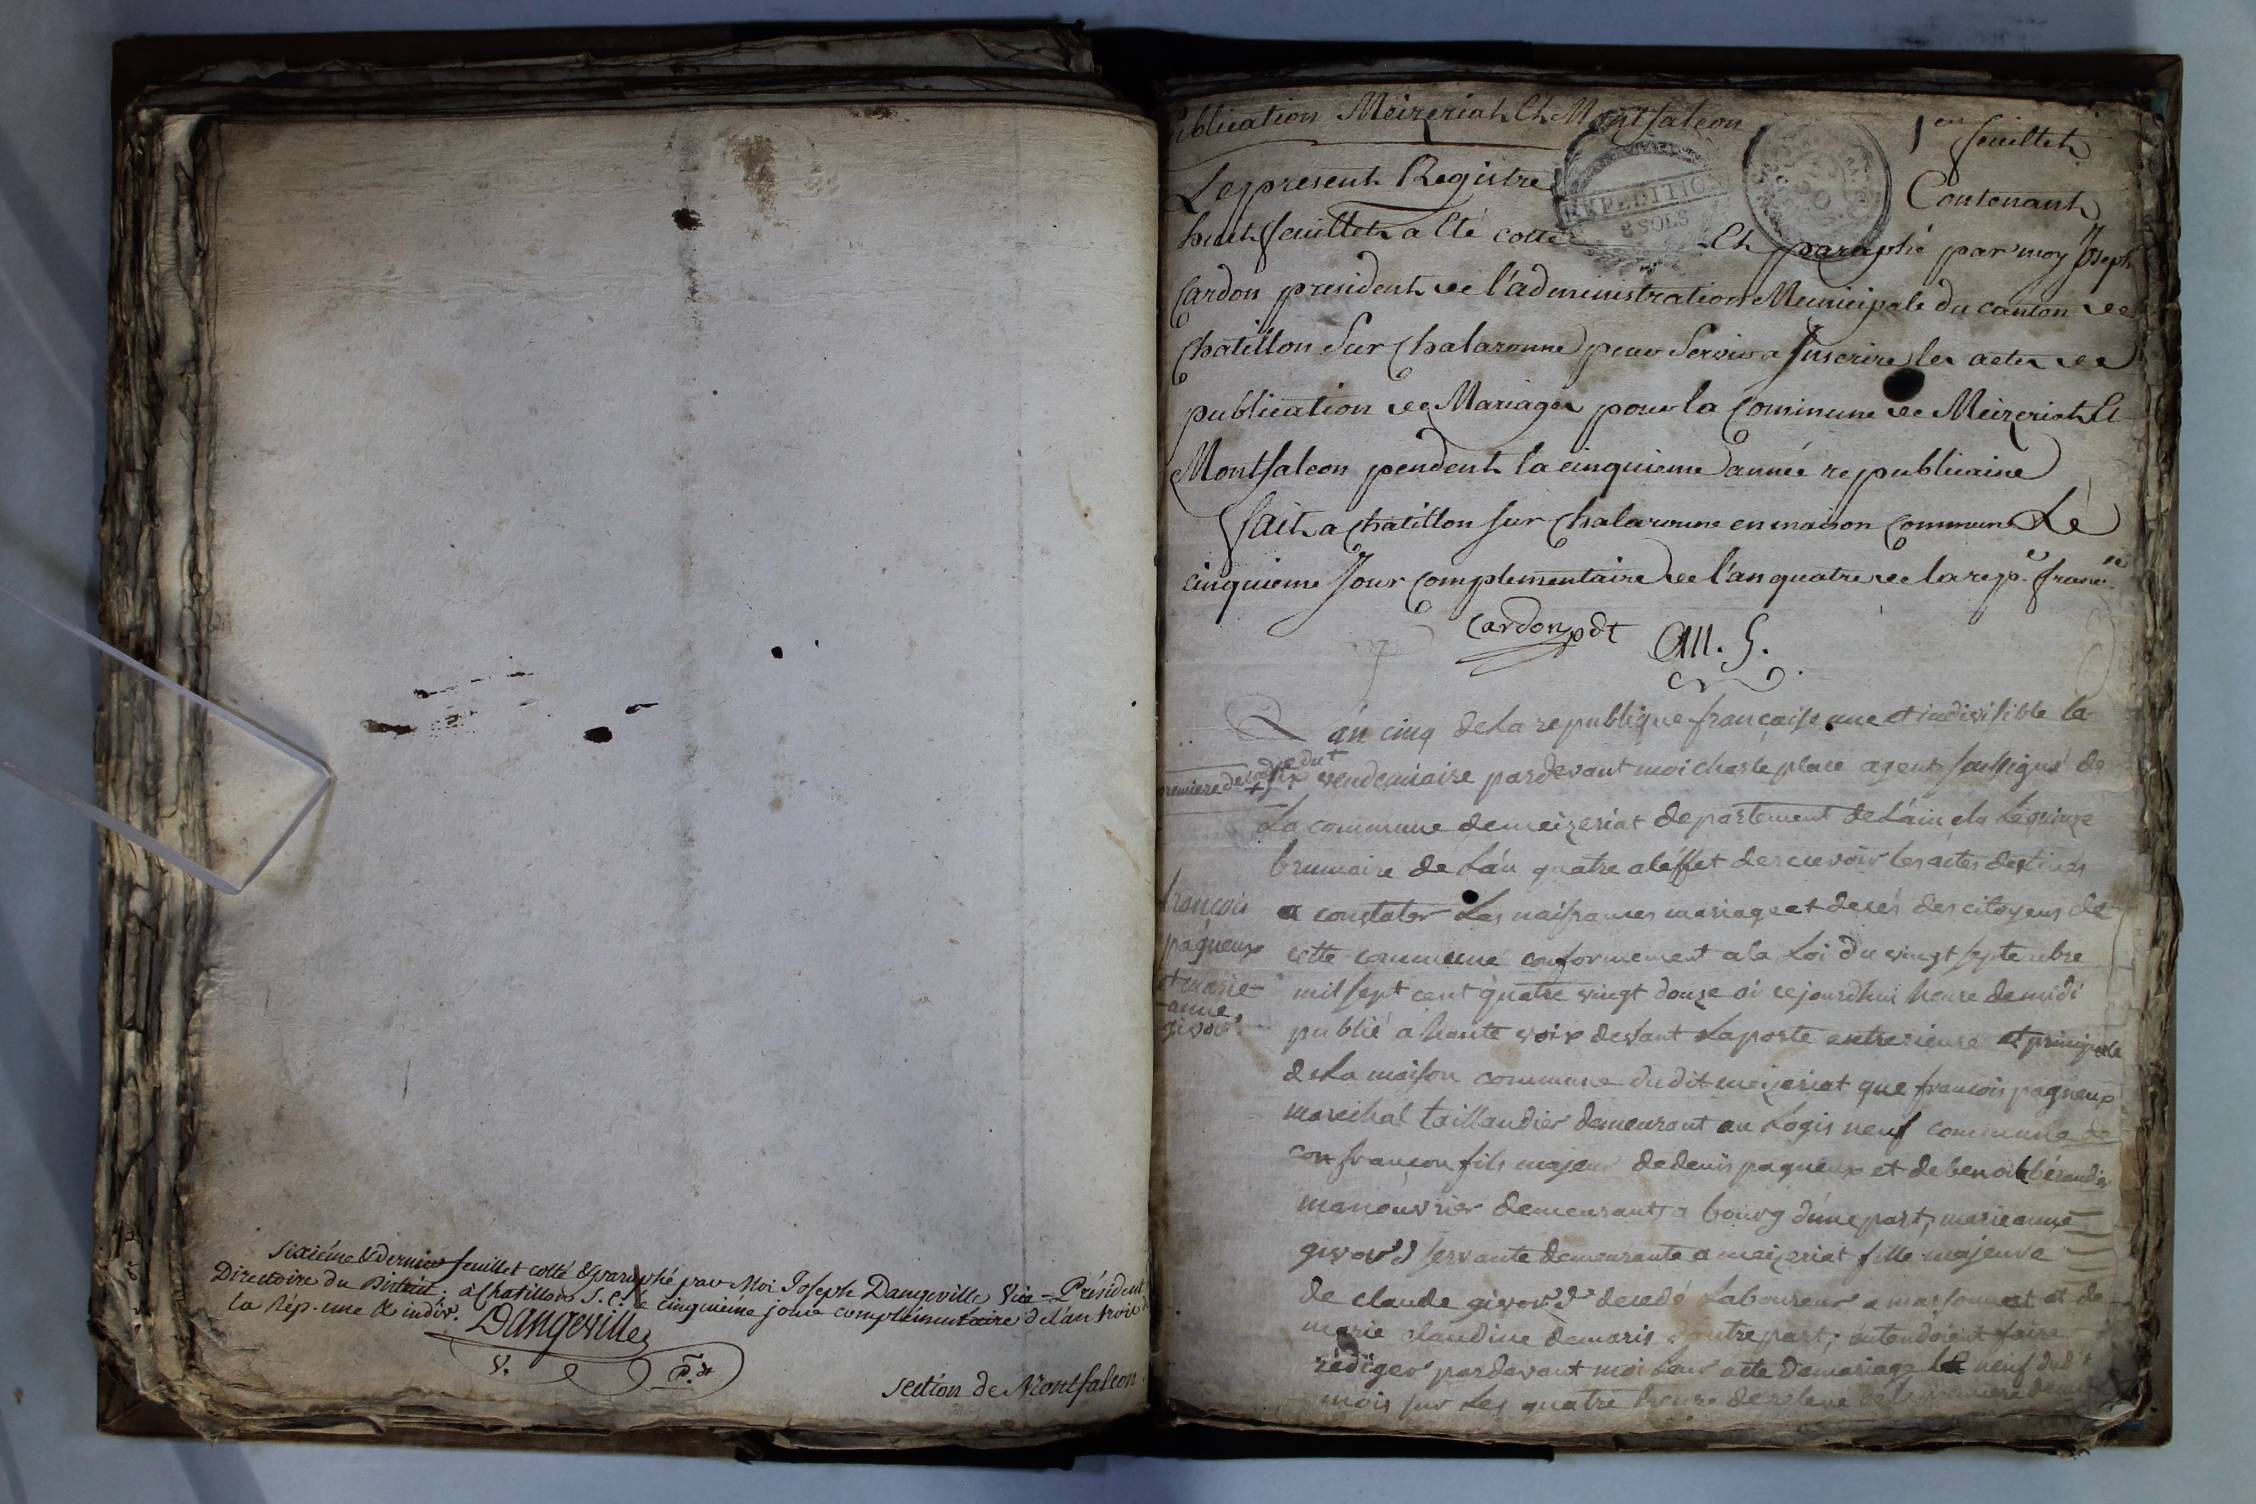 sixième & dernier feuillet cotté & paraphé par Moi Joseph Dangeville Vice-Président
Directoire du District. à Chatillon S. C. le cinquième jour complémentaire de l'an trois
la Rép. une & indiv. Dangeville
V. P. dt
section de Montfalcon
ublication Meizeriat Et Montfaleon
1er feuillet
Le present Registre Contenant
EXPEDITION
8 SOLS
huit feuillets a Eté cotté Et paraphé par moy Joseph
Cardon president de l'administration Municipale du canton de
Chatillon Sur Chalaronne pour Servir a Inscrire les actes de
publication de Mariages pour la Commune de Meizeriat Et
Montfaleon pendent la cinquieme année republicaine
fait a chatillon sur chalaronne en maison Commune Le
cinquieme Jour Complementaire de l'an quatre de la rep.e franc.se
Cardon pdt
L'an cinq de La republique française une et indivisible la
premiere decade dudt
vendemiaire pardevant moi charle place agent soussigné de
La commune de meizeriat departement de L'ain elu Le quinze
brumaire de L'an quatre a l'effet de recevoir les actes destinés
a constater Les naissances mariage et decés des citoyens de
cette commune conformement a la Loi du vingt septembre
mil sept cent quatre vingt douze ai cejourdhui heure de midi
publié a haute voix devant La porte exterieure et principale
de La maison commune dudit meizeriat que francois pagneux
marechal taillandier demeurant au Logis neuf commune de
confrançon fils majeur de denis pagneux et de benoit beraudier
manouvrier demeurants a bourg d'une part, marie anne
givord servante demeurante a meizeriat fille majeure
de claude givord decedé Laboureur a marsonnat et de
marie claudine demaris d'autre part; entendoient faire
rédiger pardevant moi Leur acte de mariage Le neuf dudt
mois sur Les quatre heure de releve
françois
pagneux
et marie
anne
givord